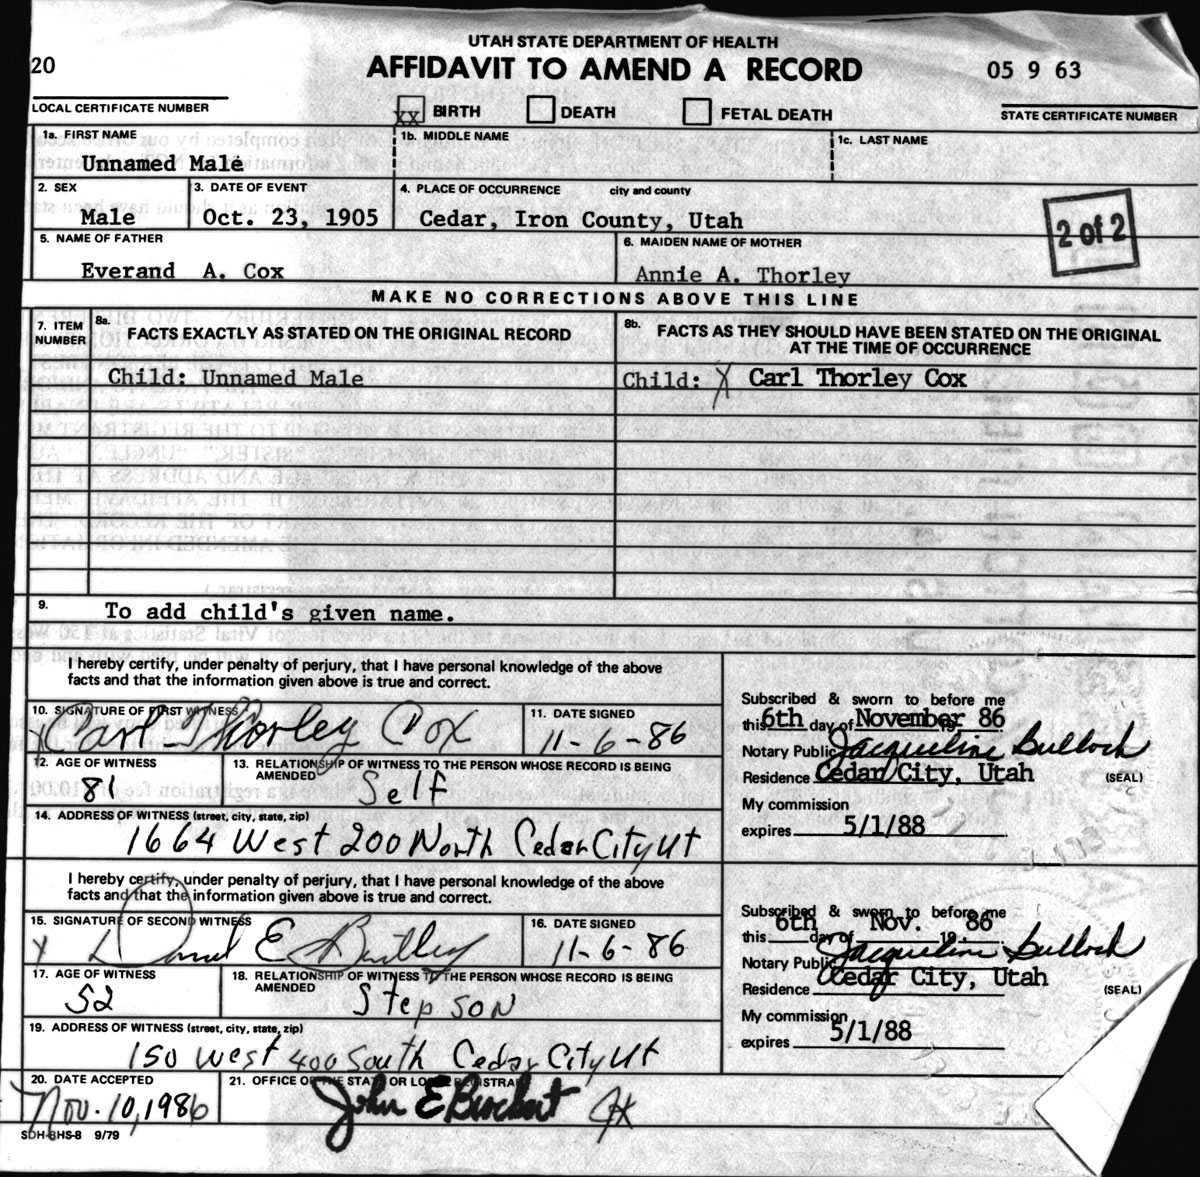 UTAH STATE DEPARTMENT OF HEALTH
20 AFFIDAVIT TO AMEND A RECORD 05 9 63
LOCAL CERTIFICATE NUMBER XX BIRTH DEATH FETAL DEATH STATE CERTIFICATE NUMBER
1a. FIRST NAME 1b. MIDDLE NAME 1c. LAST NAME
Unnamed Male
2. SEX 3. DATE OF EVENT 4. PLACE OF OCCURRENCE city and county
Male Oct. 23, 1905 Cedar, Iron County, Utah
2 of 2
5. NAME OF FATHER 6. MAIDEN NAME OF MOTHER
Everand A. Cox Annie A. Thorley
MAKE NO CORRECTIONS ABOVE THIS LINE
7. ITEM NUMBER 8a. FACTS EXACTLY AS STATED ON THE ORIGINAL RECORD 8b. FACTS AS THEY SHOULD HAVE BEEN STATED ON THE ORIGINAL
AT THE TIME OF OCCURRENCE
Child: Unnamed Male Child: X Carl Thorley Cox
9. To add child's given name.
I hereby certify, under penalty of perjury, that I have personal knowledge of the above
facts and that the information given above is true and correct.
10. SIGNATURE OF FIRST WITNESS 11. DATE SIGNED
X Carl Thorley Cox 11-6-86
12. AGE OF WITNESS 13. RELATIONSHIP OF WITNESS TO THE PERSON WHOSE RECORD IS BEING
AMENDED
81 Self
14. ADDRESS OF WITNESS (street, city, state, zip)
1664 West 200 North Cedar City Ut
Subscribed & sworn to before me
this 6th day of November 19 86
Notary Public Jacqueline Bulloch
Residence Cedar City, Utah (SEAL)
My commission
expires 5/1/88
I hereby certify, under penalty of perjury, that I have personal knowledge of the above
facts and that the information given above is true and correct.
15. SIGNATURE OF SECOND WITNESS 16. DATE SIGNED
X E 11-6-86
17. AGE OF WITNESS 18. RELATIONSHIP OF WITNESS TO THE PERSON WHOSE RECORD IS BEING
AMENDED
52 Step son
19. ADDRESS OF WITNESS (street, city, state, zip)
150 West 400 South Cedar City Ut
Subscribed & sworn to before me
this 6th day of Nov. 19 86
Notary Public Jacqueline Bulloch
Residence Cedar City, Utah (SEAL)
My commission
expires 5/1/88
20. DATE ACCEPTED 21. OFFICE OF THE STATE OR LOCAL REGISTRAR
Nov. 10, 1986 John E Brockert
SDH-BHS-8 9/79